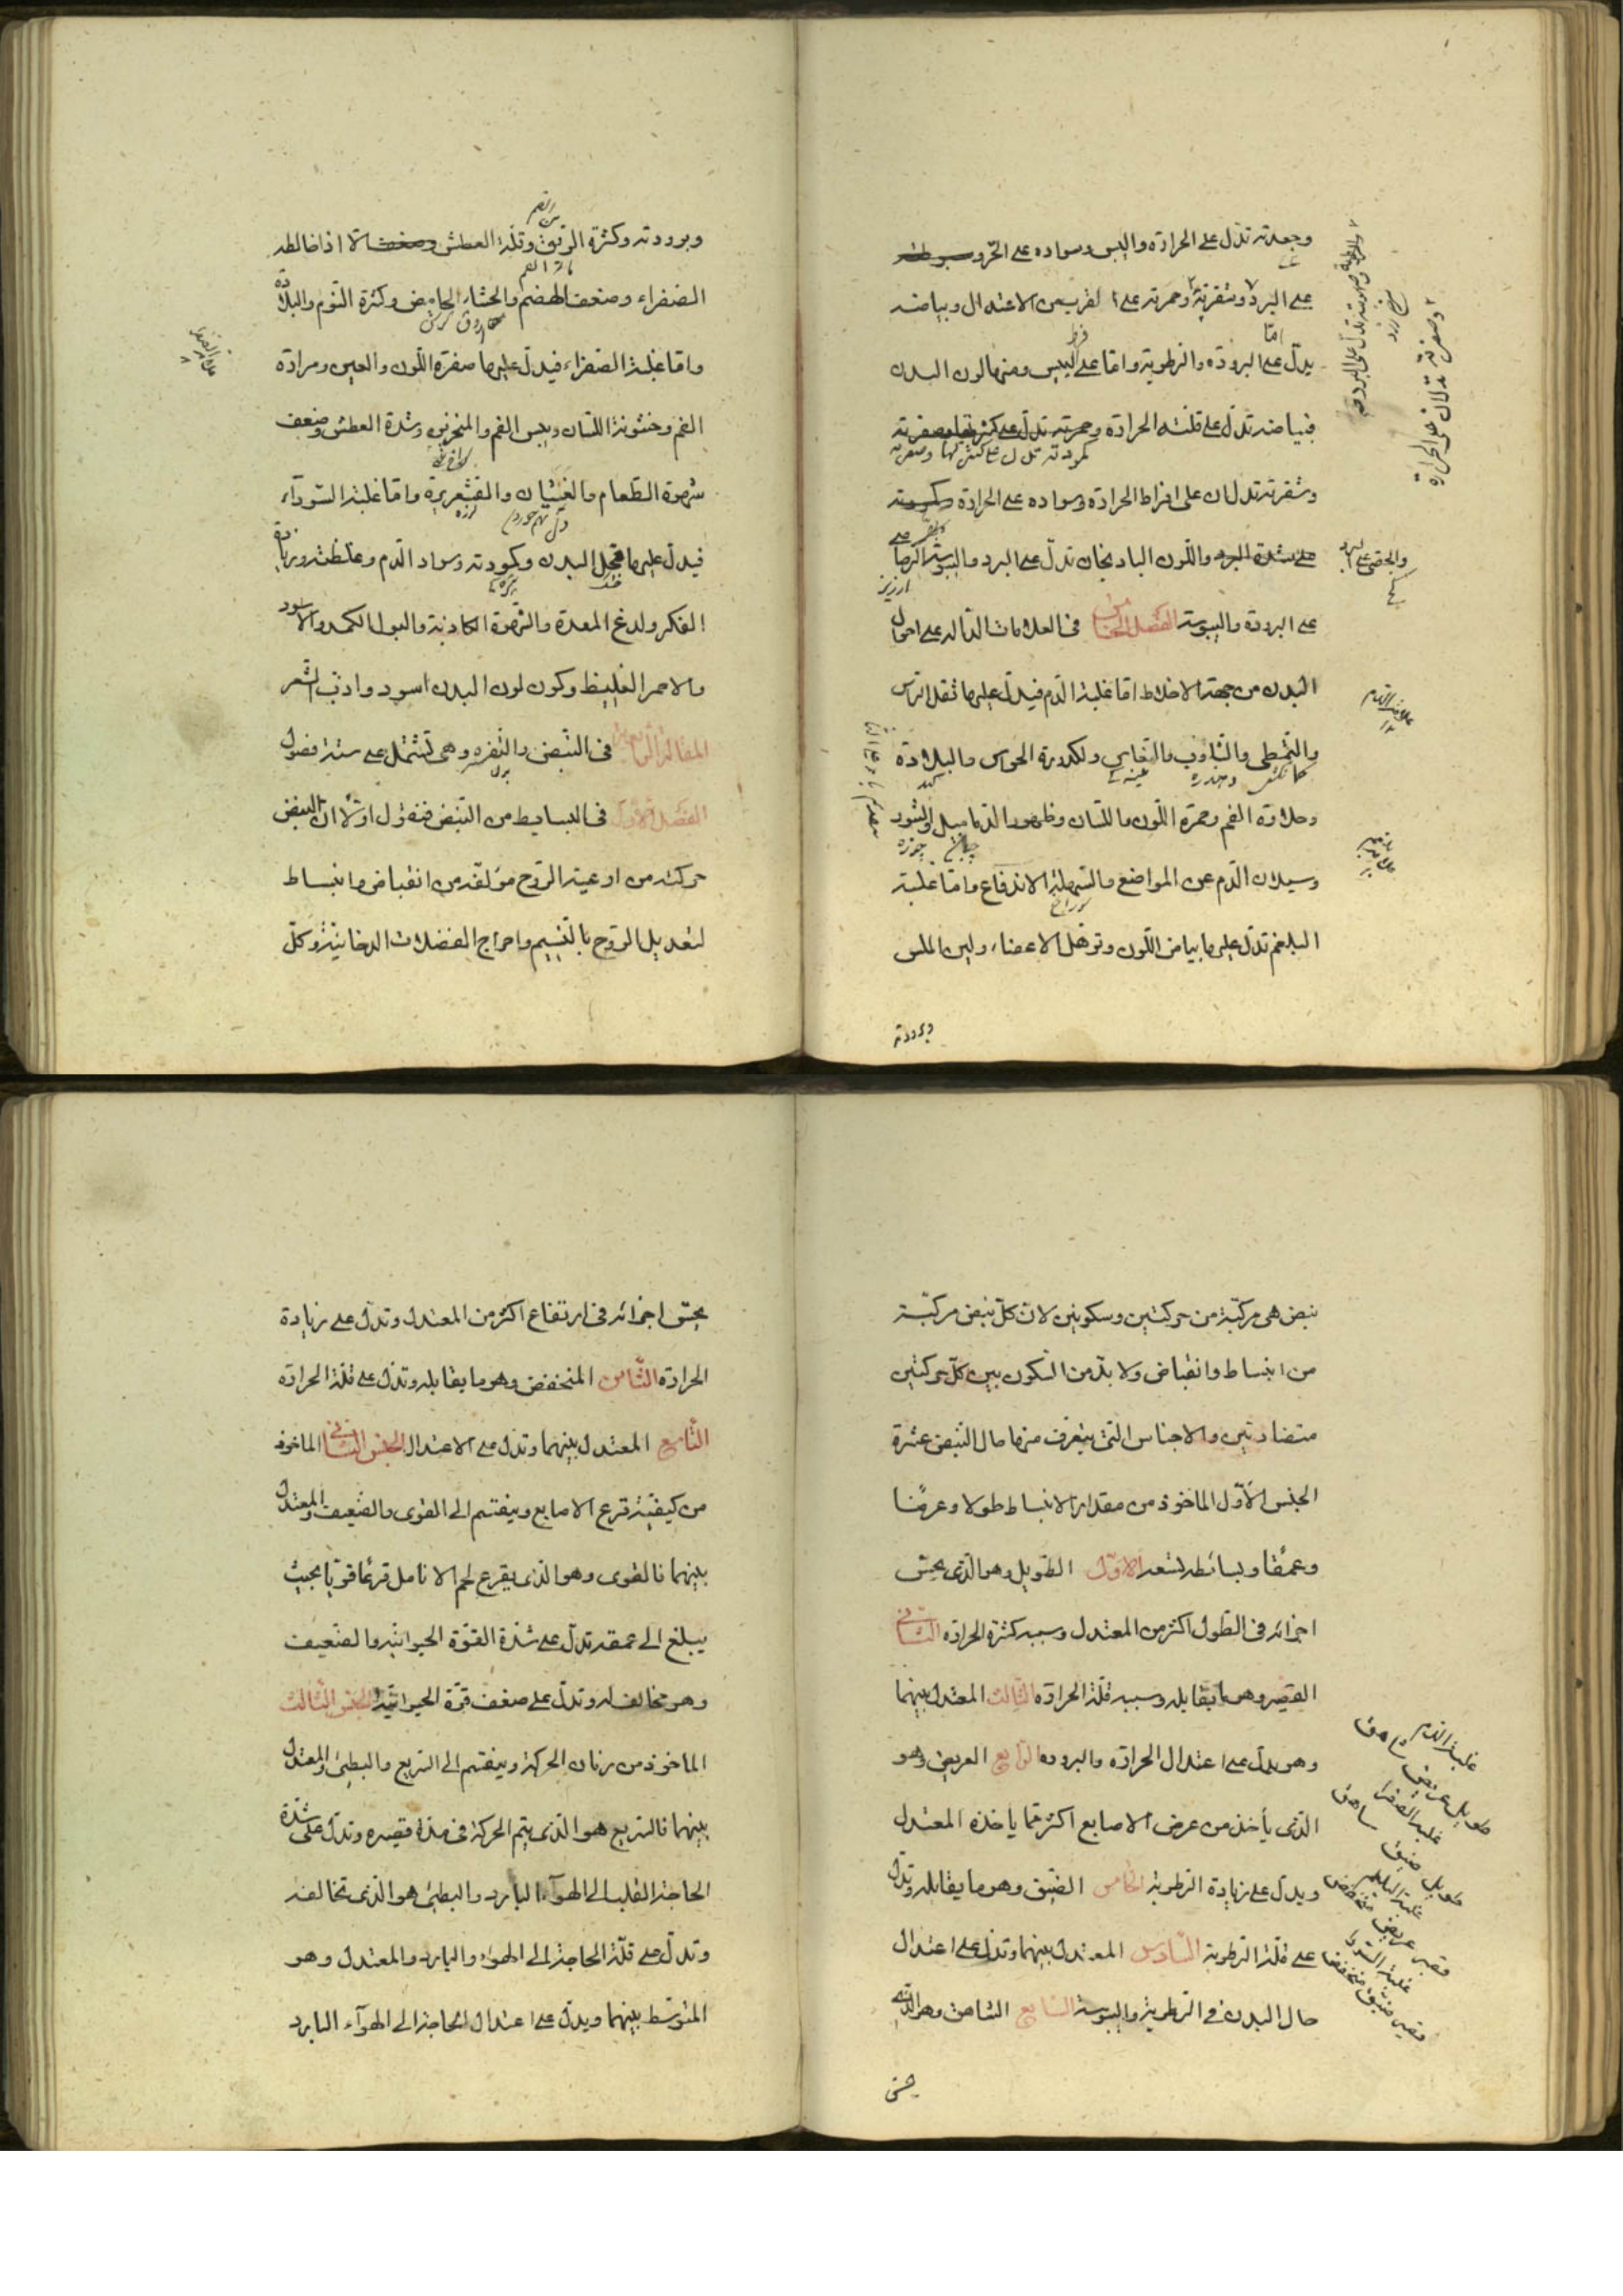 وجعدته تدل على الحرارة واليبس وسواده على الحر وسبوطته
على البرد وشقرته وحمرته على القرب من الاعتدال وبياضه
يدل اما على البرودة والرطوبة واما على فرط اليبس ومنها لون البدن
فبياضه تدل على قلة الحرارة وحمرته تدل على كثرتها وصفرته
كمودته تدل على
وشقرته تدلان على افراط الحرارة وسواده على الحرارة وكمودته
على شدة البرد واللون الباذنجان تدل على البرد واليبوسة الرصاصي
على البرودة واليبوسة الفصل الخامس فى العلامات الدالة على احوال
البدن من جهة الاخلاط اما غلبة الدم فيدل عليها ثقل الراس
والتمطى والتثاوب والنعاس ولكدورة الحواس والبلادة
وحلاوة الفم وحمرة اللون واللسان وظهور الدماميل والبثور
وسيلان الدم عن المواضع والسهلة الاندفاع واما غلبة
البلغم تدل عليها بياض اللون وترهل الاعضاء ولين الملمس
وبرودته
وصفرته تدلان على الحرارة
علامة الدم
وبرودته وكثرة الريق وقلة العطش الا اذا خالطه
الصفراء وضعف الهضم والجشاء الحامض وكثرة النوم والبلادة
واما غلبة الصفراء فيدل عليها صفرة اللون والعين ومرارة
الفم وخشونة اللسان ويبس الفم والمنخرين وشدة العطش وضعف
شهوة الطعام والغثيان والقشعريرة واما غلبة السوداء
فيدل عليها قحل البدن وكمودته وسواد الدم وغلظته وزيادة
الفكر ولدغ المعدة والشهوة الكاذبة والبول الكمد والاسود
والاحمر الغليظ وكون لون البدن اسود وازب الشعر
المقالة الرابعة فى النبض والتفسره وهى تشتمل على ستة فصول
الفصل الاول فى البسايط من النبض فنقول اولا ان النبض
حركته من اوعية الروح مؤلفة من انقباض وانبساط
لتعديل الروح بالنسيم واخراج الفضلات الدخانية وكل
نبض هى مركبة من حركتين وسكونين لان كل نبض مركبة
من انبساط وانقباض ولا بد من السكون بين كل حركتين
متضادتين والاجناس التى يتعرف منها حال النبض عشرة
الجنس الاول الماخوذ من مقدار الانبساط طولا وعرضا
وعمقا وبسائطه تسعه الاول الطويل وهو الذى يحس
اجزائه فى الطول اكثر من المعتدل وسببه كثرة الحرارة الثانى
القصير وهو ما يقابله وسببه قلة الحرارة الثالث المعتدل بينهما
وهو يدل على اعتدال الحرارة والبروده الرابع العريض وهو
الذى يأخذ من عرض الاصابع اكثر مما ياخذه المعتدل
ويدل على زيادة الرطوبة الخامس الضيق وهو ما يقابله وتدل
على قلة الرطوبة السادس المعتدل بينهما وتدل على اعتدال
حال البدن فى الرطوبة واليبوسة السابع الشاهق وهو الذى
يحس
غلبة الدم
طويل عريض شاهق
غلبة الصفرا
طويل ضيق شاهق
غلبة البلغم
قصير عريض منخفض
غلبة السودا
قصير ضيق منخفض
يحس اجزائه فى ارتفاع اكثر من المعتدل وتدل على زيادة
الحرارة الثامن المنخفض وهو ما يقابله وتدل على قلة الحرارة
التاسع المعتدل بينهما وتدل على الاعتدال الجنس الثانى الماخوذ
من كيفية قرع الاصابع وينقسم الى القوى والضعيف والمعتدل
بينهما فالقوى وهو الذى يقرع لحم الانامل قرعا قويا بحيث
يبلغ الى عمقه تدل على شدة القوة الحيوانية والضعيف
وهو مخالفه وتدل على ضعف قوة الحيوانية الجنس الثالث
الماخوذ من زمان الحركة وينقسم الى السريع والبطئ والمعتدل
بينهما فالسريع هو الذى يتم الحركة فى مدة قصيره وتدل على شدة
الحاجة القلب الى الهوآء البارد والبطئ هو الذى تخالفه
وتدل على قلة الحاجة الى الهواء والبارد والمعتدل وهو
المتوسط بينهما ويدل على اعتدال الحاجة الى الهوآء البارد